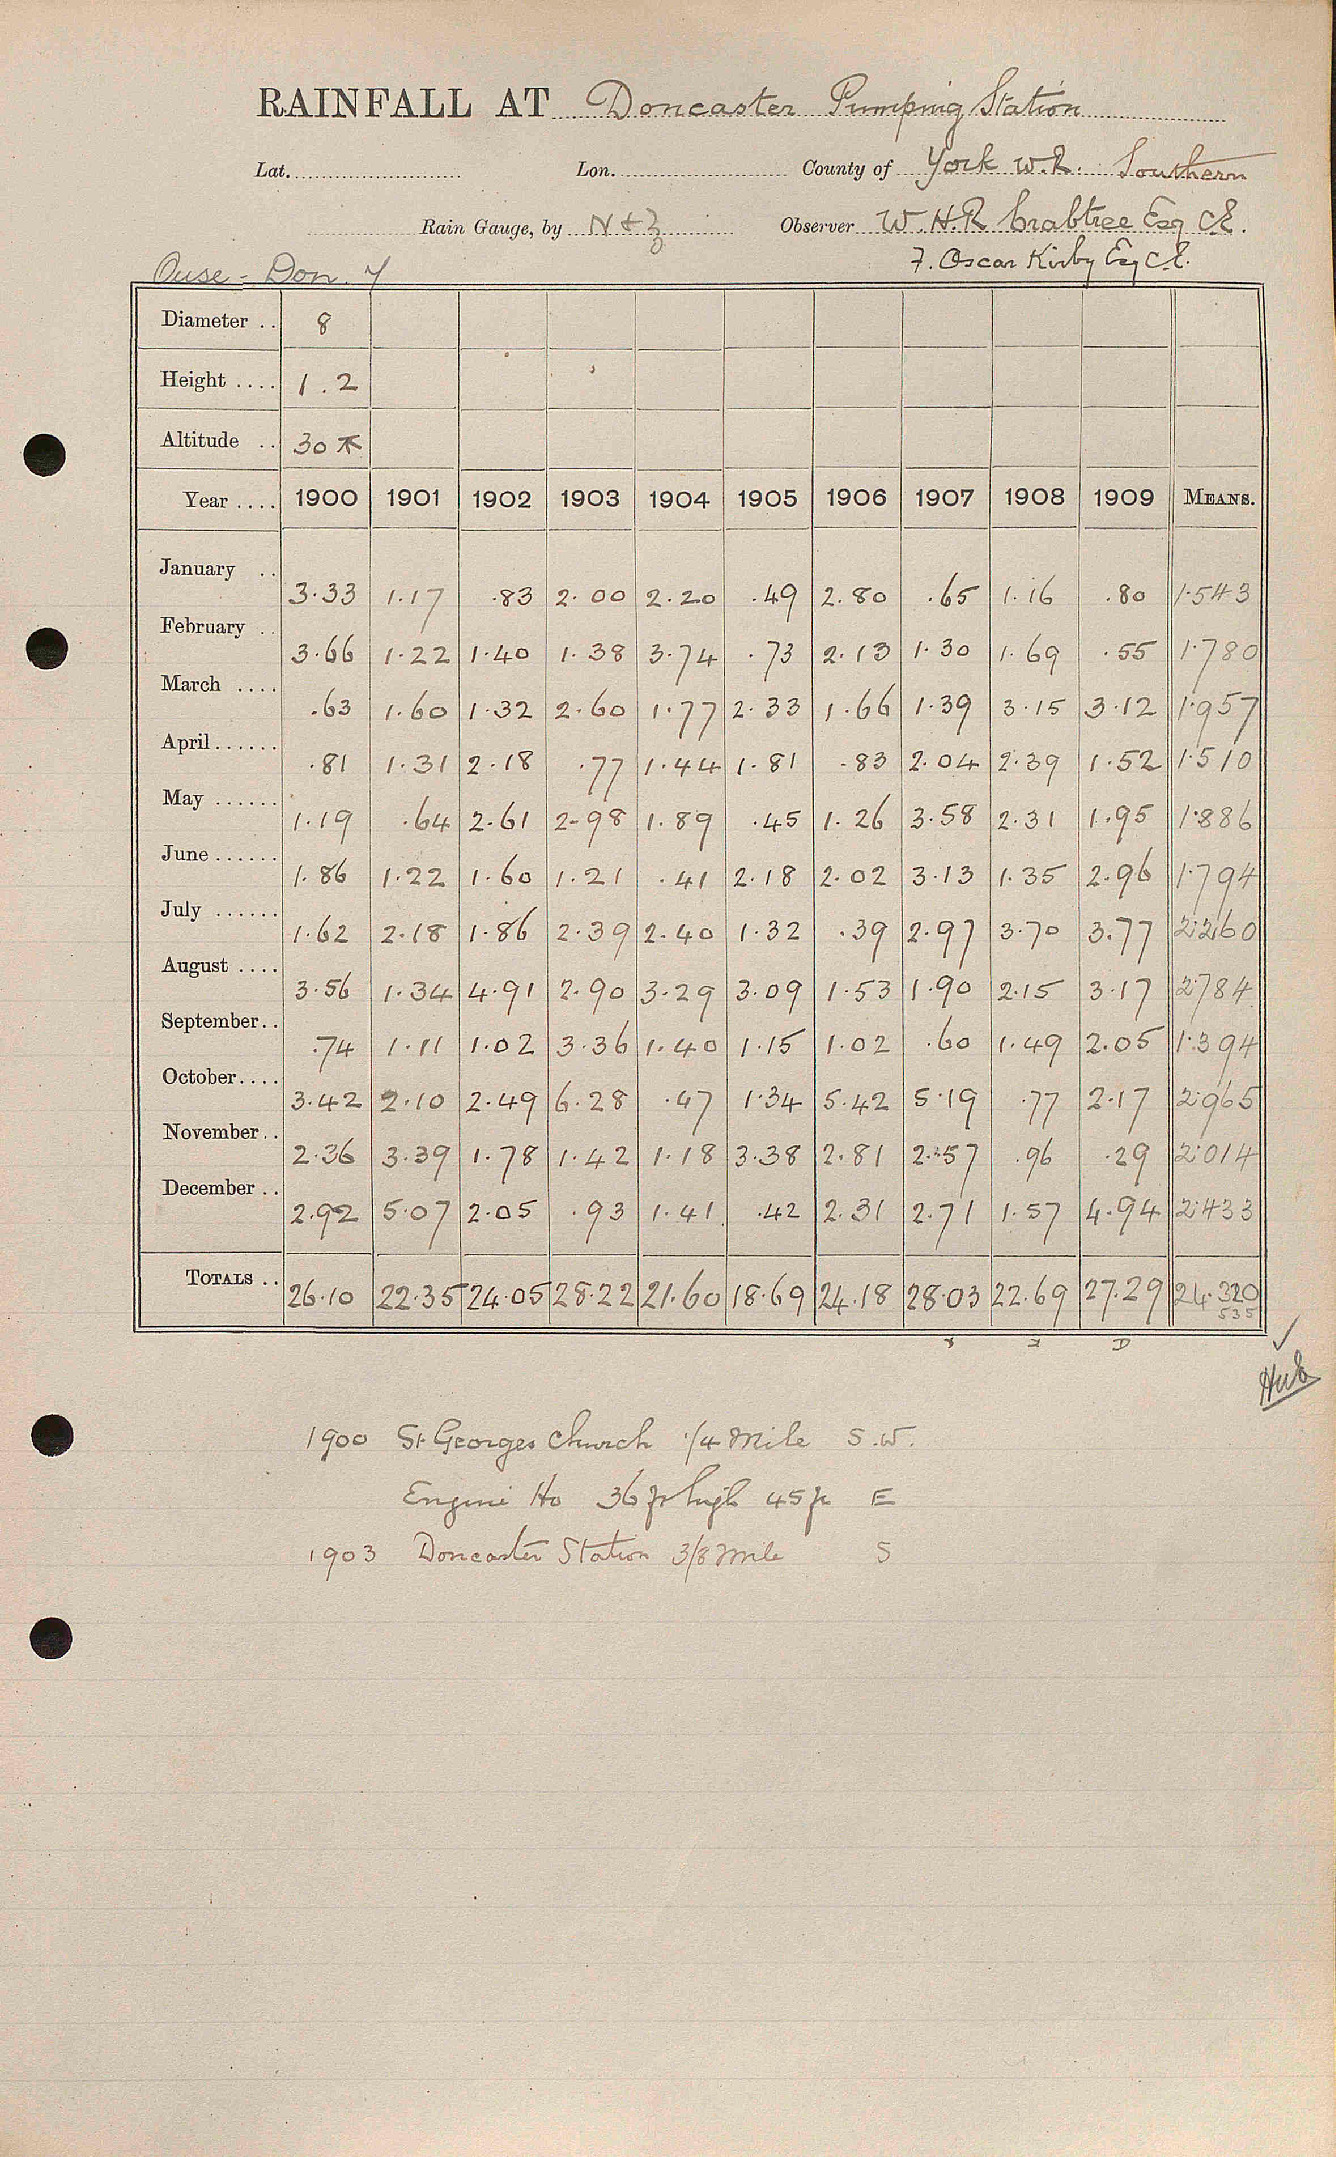 RAINFALL AT Doncaster Pumping Station
Lat. Lon. County of York W.R. Southern
Rain Gauge, by N & Z Observer W.H.R. Crabtree Esq C.E.
F. Oscar Kirby Esq C.E.
Ouse - Don. 7
Diameter .. 8
Height .... 1.2
Altitude .. 30
Year .... 1900 1901 1902 1903 1904 1905 1906 1907 1908 1909 MEANS.
January .. 3.33 1.17 .83 2.00 2.20 .49 2.80 .65 1.16 .80 1.543
February .. 3.66 1.22 1.40 1.38 3.74 .73 2.13 1.30 1.69 .55 1.780
March .... .63 1.60 1.32 2.60 1.77 2.33 1.66 1.39 3.15 3.12 1.957
April...... .81 1.31 2.18 .77 1.44 1.81 .83 2.04 2.39 1.52 1.510
May ...... 1.19 .64 2.61 2.98 1.89 .45 1.26 3.58 2.31 1.95 1.886
June...... 1.86 1.22 1.60 1.21 .41 2.18 2.02 3.13 1.35 2.96 1.794
July ...... 1.62 2.18 1.86 2.39 2.40 1.32 .39 2.97 3.70 3.77 2.260
August .... 3.56 1.34 4.91 2.90 3.29 3.09 1.53 1.90 2.15 3.17 2.784
September.. .74 1.11 1.02 3.36 1.40 1.15 1.02 .60 1.49 2.05 1.394
October.... 3.42 2.10 2.49 6.28 .47 1.34 5.42 5.19 .77 2.17 2.965
November.. 2.36 3.39 1.78 1.42 1.18 3.38 2.81 2.57 .96 .29 2.014
December .. 2.92 5.07 2.05 .93 1.41 .42 2.31 2.71 1.57 4.94 2.433
TOTALS .. 26.10 22.35 24.05 28.22 21.60 18.69 24.18 28.03 22.69 27.29 24.320
535
D
1900 St Georges Church 1/4 Mile S.W.
Engine Ho 36 ft high 45 ft E
1903 Doncaster Station 3/8 Mile S